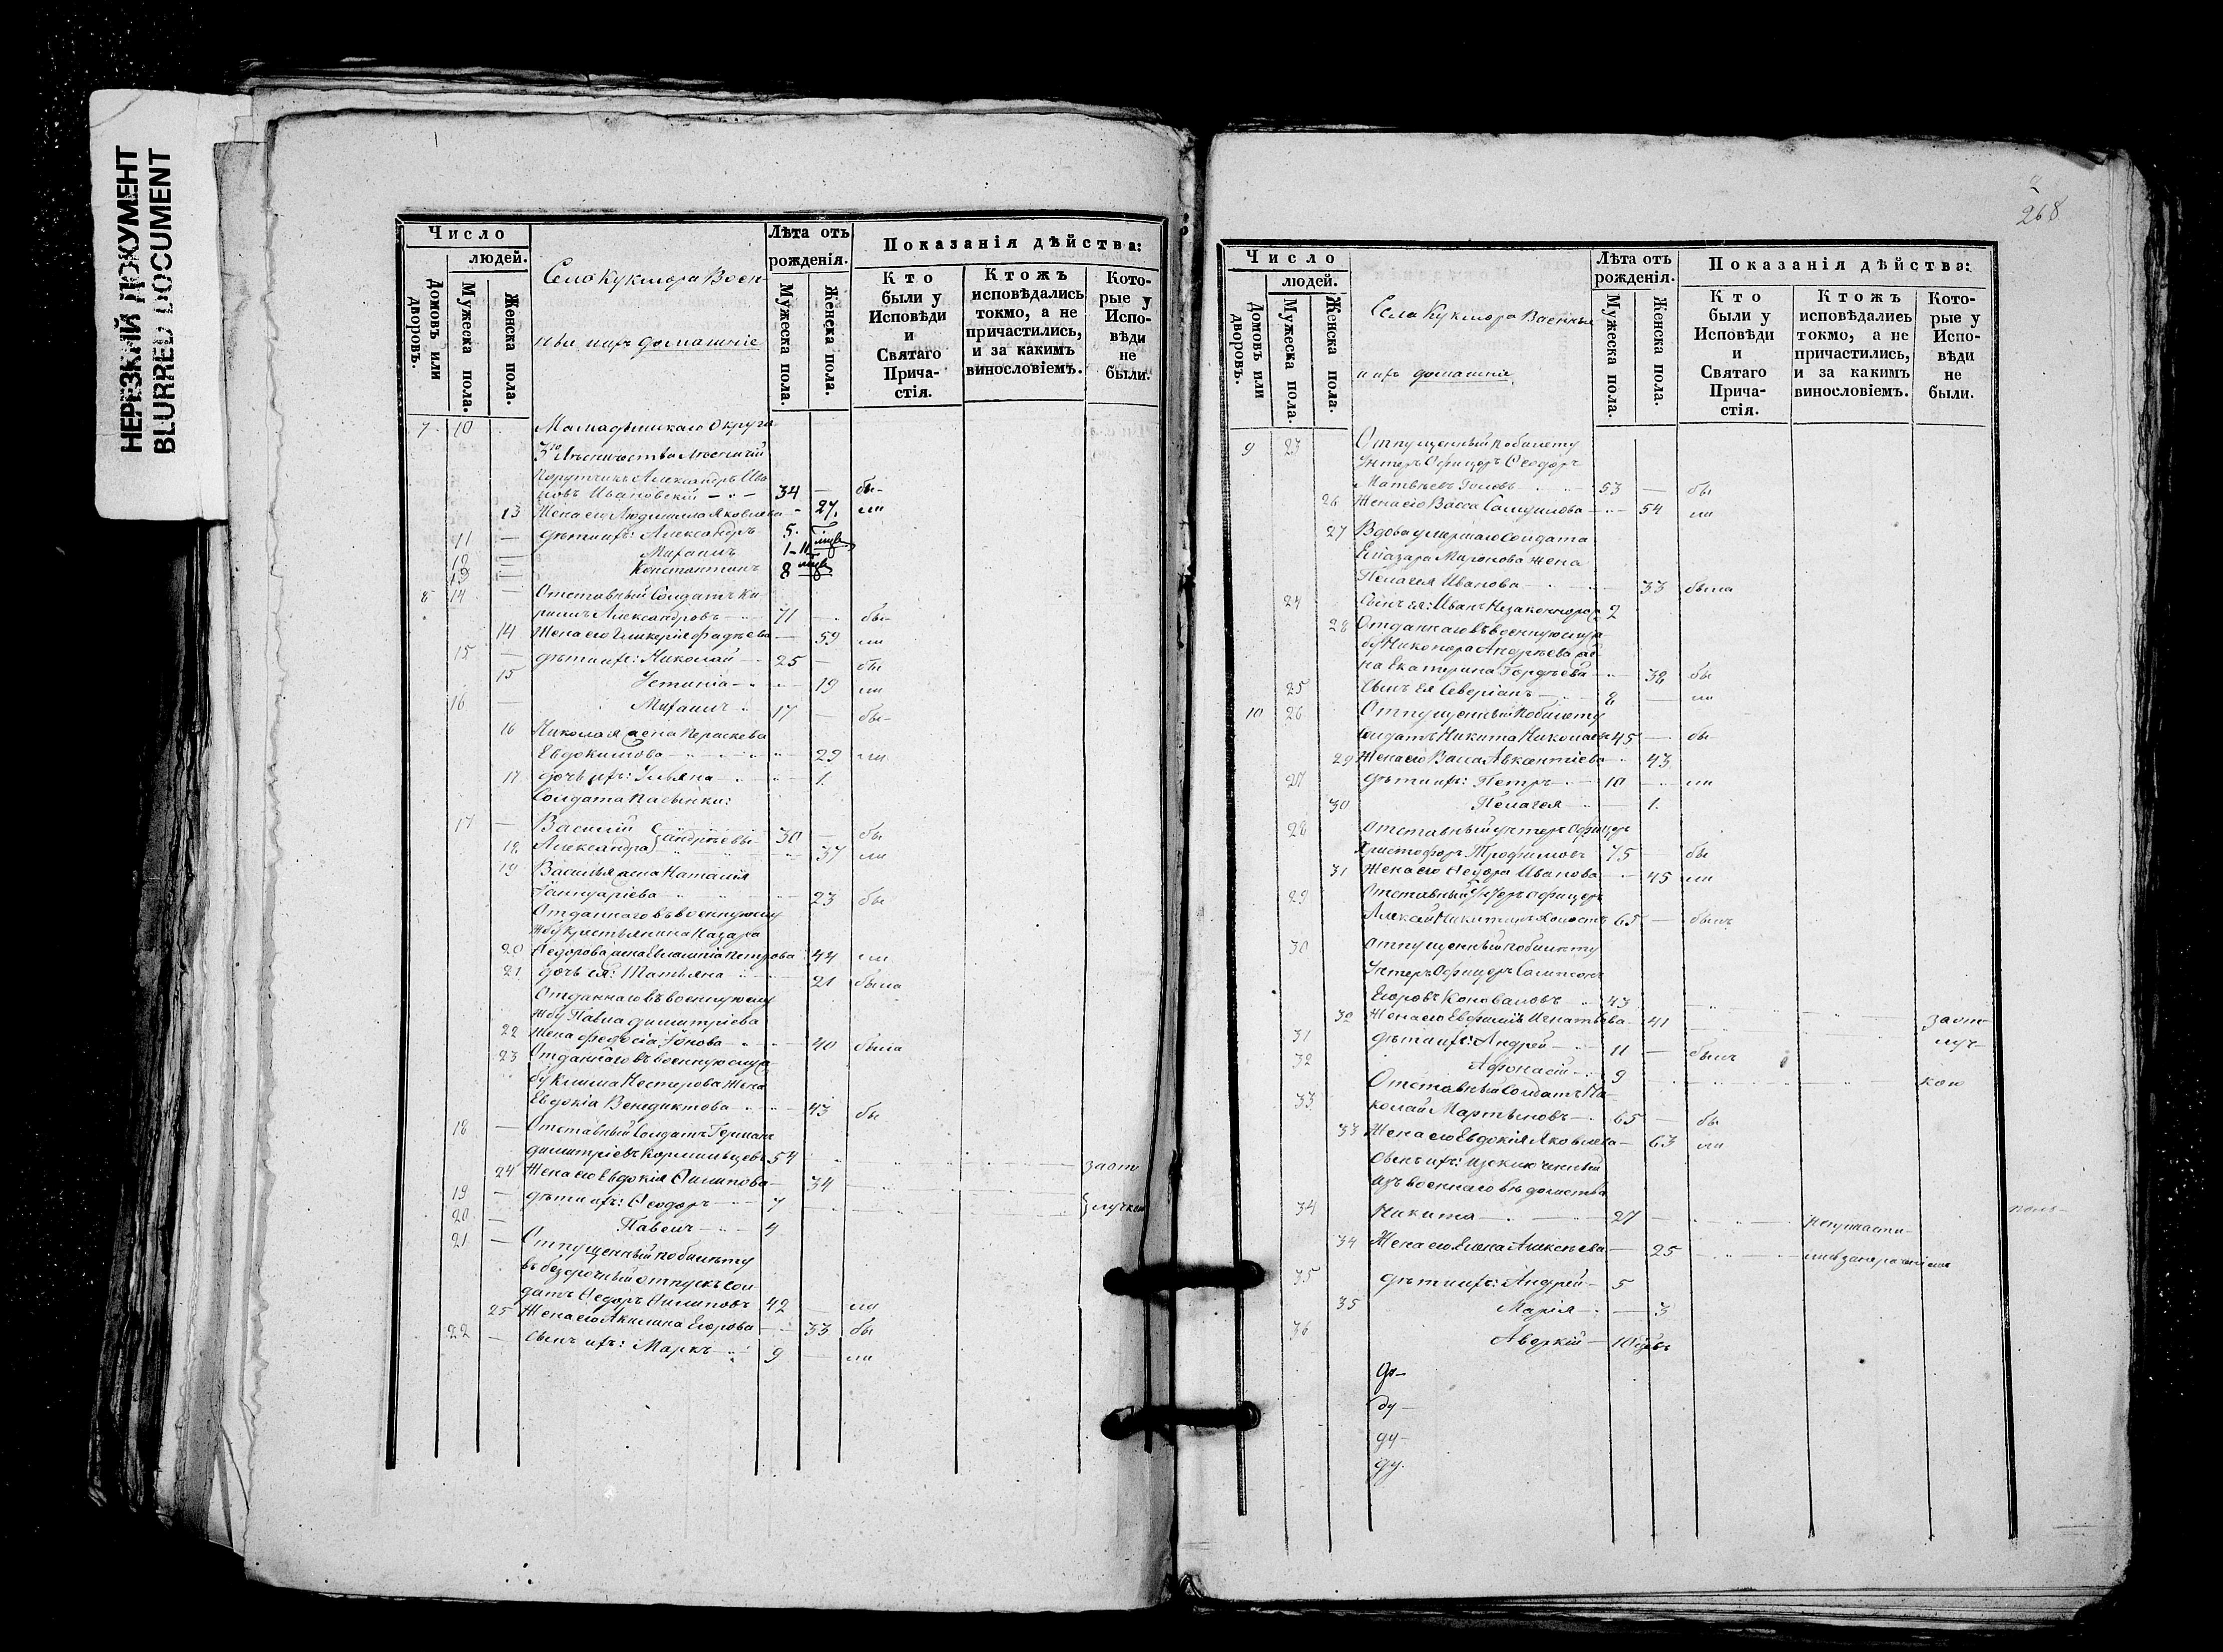 НЕРЕЗКИЙ ДОКУМЕНТ
BLURRED DOCUMENT
Число
людей.
Домовъ или дворовъ.
Мужеска пола.
Женска пола.
Село Кукмора Воен-
ные ихъ домашніе
Лѣта отъ рожденія.
Мужеска пола.
Женска пола.
Показанія дѣйства:
Кто были у Исповѣди и Святаго Прича-стія.
Ктожъ исповѣдались токмо, а не причастились, и за какимъ винословіемъ.
Кото-рые у Испо-вѣди не были.
7 10 Мамадышскаго Округа
Лѣсничества Лѣсничій
Порутчикъ Александръ Ива
новъ Ивановскій 34 — бы-
13 Жена его Людмила Яковлева 27. ли
11 — дѣти ихъ: Александръ 5.
12 Михаилъ 1-11
13 Константинъ 8
8 14 — Отставный Солдатъ Ки
рилъ Александровъ 71 — бы-
14 Жена его Гликерія Фадѣева — 59 ли
15 — дѣти ихъ: Николай 25 — бы
15 Устинія — 19 ли
16 — Михаилъ 17 — бы-
16 Николая жена Параскева
Евдокимова 29 ли
17 дочь ихъ: Ульяна 1.
Солдата пасынки:
17 — Василій Андрѣевы 30 — бы
18 Александра 37 ли
19 Василья жена Наталія
Іаннуаріева 23 бы
Отданнаго въ военную слу
жбу крестьянина Назара
20 Федорова жена Евлампія Петрова 44 ли
21 дочь ея: Татьяна 21 была
Отданнаго въ военную слу
жбу Павла Димитріева
22 жена Федосія Іонова 40 была
23 Отданнаго въ военную служ
бу Клима Нестерова жена
Евдокія Венедиктова 43 бы
18 — Отставный Солдатъ Герман
Димитріевъ Кормильцевъ 54 заот
24 Жена его Евдокія Филипова 34
19 — дѣти ихъ: Феодоръ 7 лучкою
20 — Павелъ 4
21 — Отпущенный по билету
въ безсрочный отпускъ сол
датъ Федоръ Филиповъ 42 — ли
25 Жена его Акилина Егорова 33 бы
22 — Сынъ ихъ: Маркъ 9 — ли
268
Число
людей.
Домовъ или дворовъ.
Мужеска пола.
Женска пола.
Села Кукмора Военные
ихъ домашніе
Лѣта отъ рожденія.
Мужеска пола.
Женска пола.
Показанія дѣйства:
Кто были у Исповѣди и Святаго Прича-стія.
Ктожъ исповѣдались токмо, а не причастились, и за какимъ винословіемъ.
Кото-рые у Испо-вѣди не были.
9 23 Отпущенный по билету
Унтеръ Офицеръ Феодоръ
Матвѣевъ 53 — бы
26 Жена его Васса Самуилова 54 ли
27 Вдова умершаго Солдата
Елиазара Миронова жена
Пелагея Иванова 33 была
24 Сынъ ея: Иванъ Незаконнорож 2
28 Отданнаго въ военную служ
бу Никонора Андрѣева же
на Екатерина Гордѣева 38 бы
25 Сынъ ея Северіанъ 8 — ли
10 26 Отпущенный по билету
солдатъ Никита Николаевъ 45 — бы
29 Жена его Васса Авксентіева 43
27 дѣти ихъ: Петръ 10 — ли
30 Пелагея — 1.
28 Отставный унтеръ Офицеръ
Христофоръ Трофимовъ 75 — бы
31 Жена его Федора Иванова 45 ли
29 Отставный Унтеръ офицеръ
Алексей Никитинъ Холостъ 65 — былъ
30 Отпущенный по билету
Унтеръ Офицеръ Сампсонъ
Егоровъ Коноваловъ 43
32 Жена его Ефимія Игнатьева 41 заот-
31 дѣти ихъ: Андрей 11 — былъ луч-
32 Афонасій 9 кою
33 Отставный Солдатъ Ни-
колай Мартыновъ 65 — бы
33 Жена его Евдокія Яковлева — 63 ли
Сынъ ихъ: изключенный
изъ военнаго вѣдомства
34 Никита 27 — Непричасти-
34 Жена его Елена Алексѣева — 25
35 дѣти ихъ: Андрей 5
35 Марія — 3
36 Аверкій